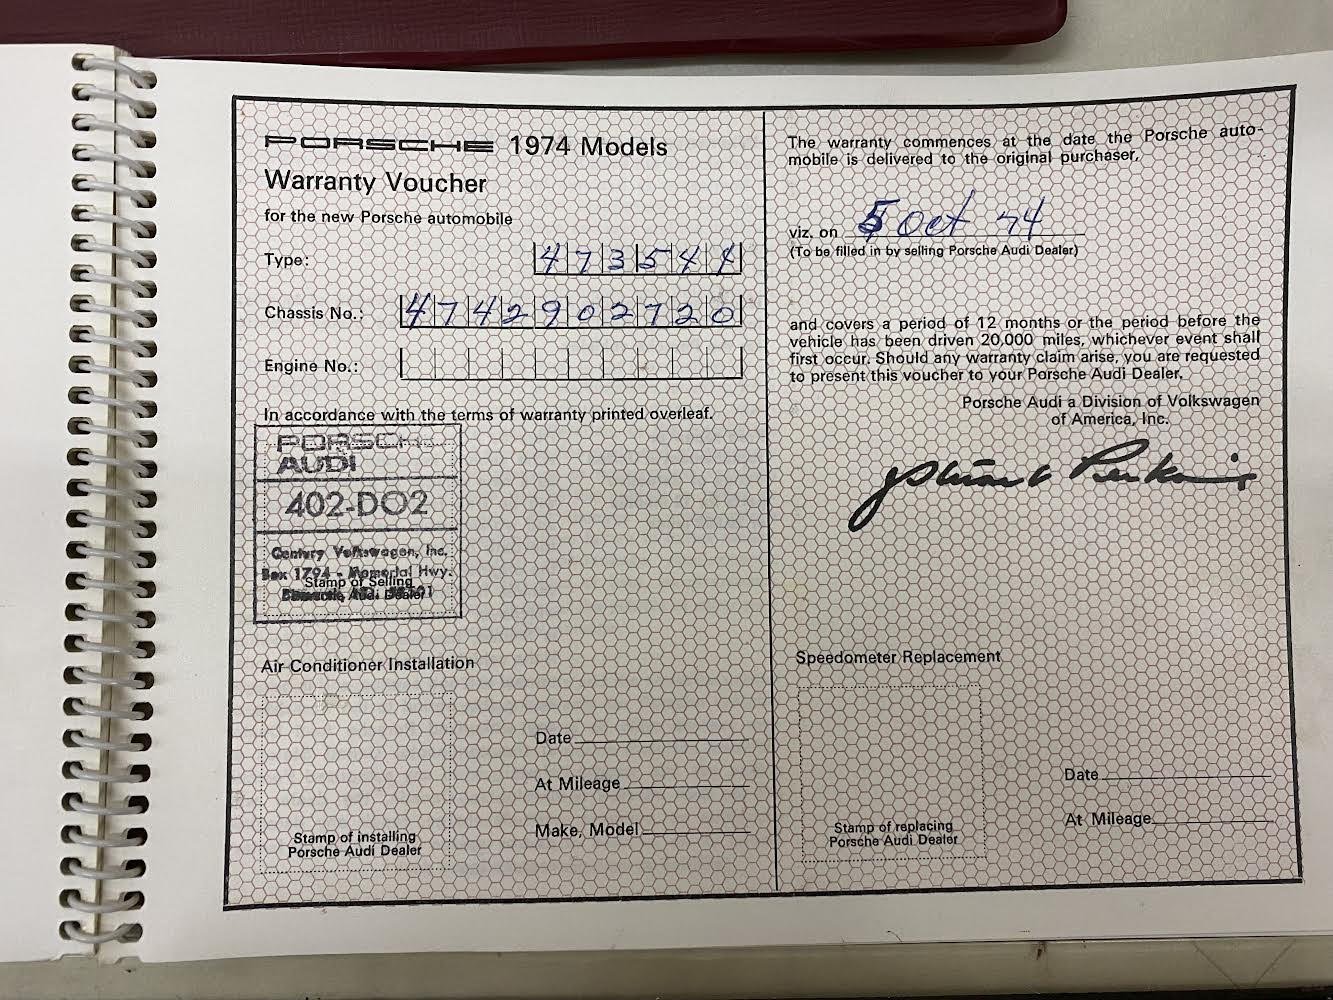 PORSCHE 1974 Models
Warranty Voucher
for the new Porsche automobile
Type: 473544
Chassis No.: 4742902720
Engine No.:
In accordance with the terms of warranty printed overleaf.
PORSCHE
AUDI
402-DO2
Century Volkswagen, Inc.
Box 1794 - Memorial Hwy.
Stamp of Selling
Porsche Audi Dealer
Air Conditioner Installation
Date
At Mileage
Make, Model
Stamp of installing
Porsche Audi Dealer
The warranty commences at the date the Porsche auto-
mobile is delivered to the original purchaser,
viz. on 5 Oct 74
(To be filled in by selling Porsche Audi Dealer)
and covers a period of 12 months or the period before the
vehicle has been driven 20,000 miles, whichever event shall
first occur. Should any warranty claim arise, you are requested
to present this voucher to your Porsche Audi Dealer.
Porsche Audi a Division of Volkswagen
of America, Inc.
Speedometer Replacement
Date
At Mileage
Stamp of replacing
Porsche Audi Dealer